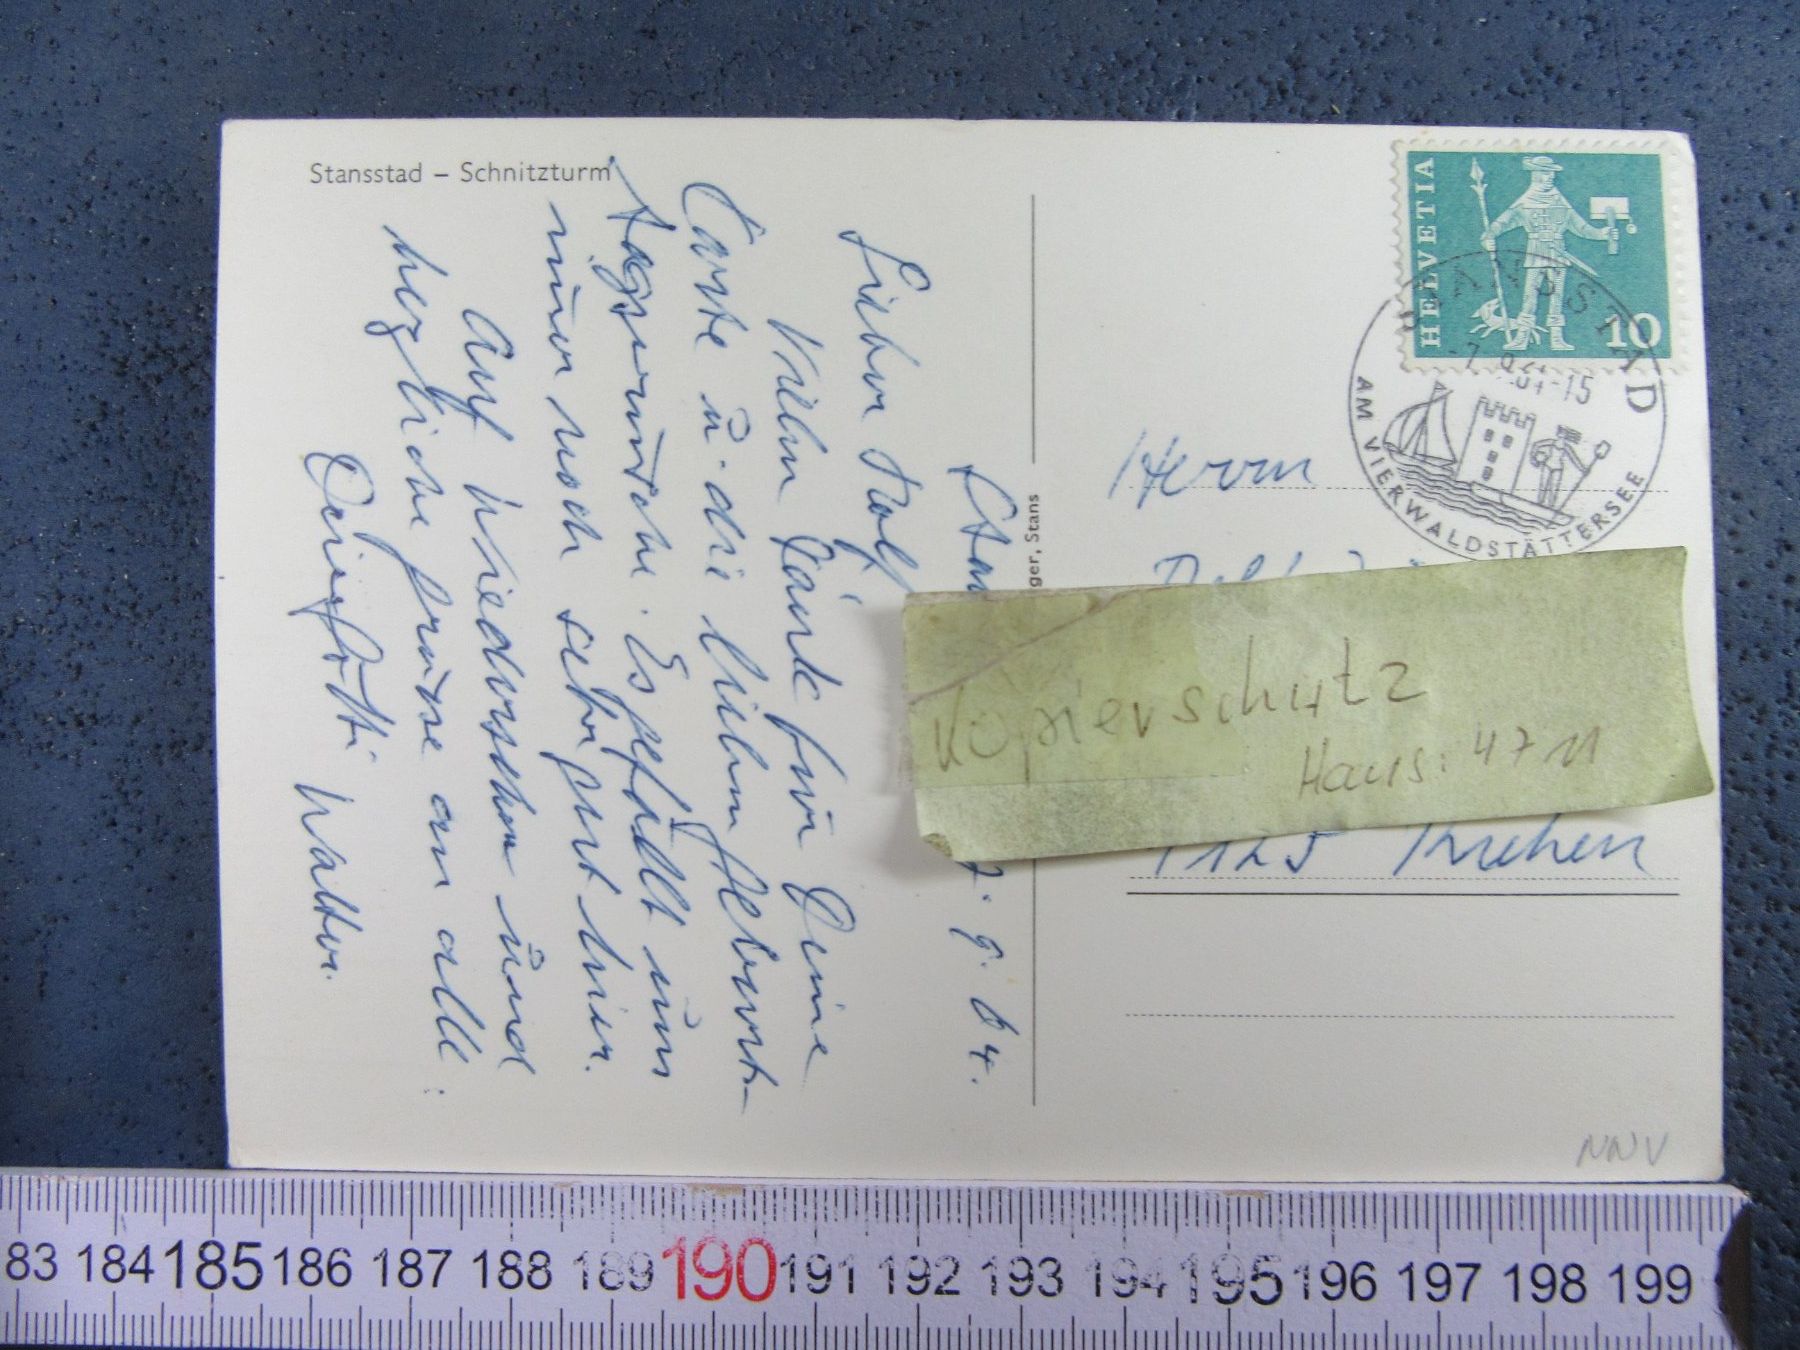 Stansstad – Schnitzturm
7. 9. 64.
Lieber Rolf,
Vielen Dank für Deine
Karte u. die lieben Geburts-
tagswünsche. Es gefällt uns
immer noch sehr gut hier.
Auf Wiedersehen und
herzliche Grüsse an alle:
Dein Götti Walter.
ger, Stans
HELVETIA
10
STANSSTAD
AM VIERWALDSTÄTTERSEE
Herrn
4125 Riehen
Kopierschutz
Haus: 4711
NNV
83 184 185 186 187 188 189 190 191 192 193 194 195 196 197 198 199